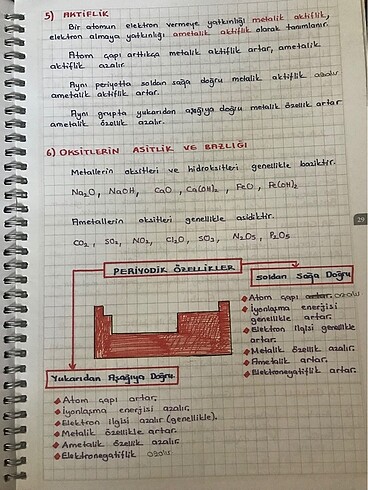 5) AKTİFLİK
Bir atomun elektron vermeye yatkınlığı metalik aktiflik,
elektron almaya yatkınlığı ametalik aktiflik olarak tanımlanır.
Atom çapı arttıkça metalik aktiflik artar, ametalik
aktiflik azalır.
Aynı periyotta soldan sağa doğru metalik aktiflik azalır
ametalik aktiflik artar.
Aynı grupta yukarıdan aşağıya doğru metalik özellik artar
ametalik özellik azalır.
6) OKSİTLERİN ASİTLİK VE BAZLIĞI
Metallerin oksitleri ve hidroksitleri genellikle baziktir.
Na₂O, NaOH, CaO, Ca(OH)₂, FeO, Fe(OH)₂
Ametallerin oksitleri genellikle asidiktir.
CO₂, SO₂, NO₂, Cl₂O, SO₃, N₂O₅, P₂O₅
29
PERİYODİK ÖZELLİKLER
Soldan Sağa Doğru
Atom çapı artar. azalır
İyonlaşma enerjisi
genellikle artar.
Elektron ilgisi genellikle
artar.
Metalik özellik azalır.
Ametalik artar.
Elektronegatiflik artar.
Yukarıdan Aşağıya Doğru
Atom çapı artar.
İyonlaşma enerjisi azalır.
Elektron ilgisi azalır (genellikle).
Metalik özellikle artar.
Ametalik özellik azalır.
Elektronegatiflik azalır